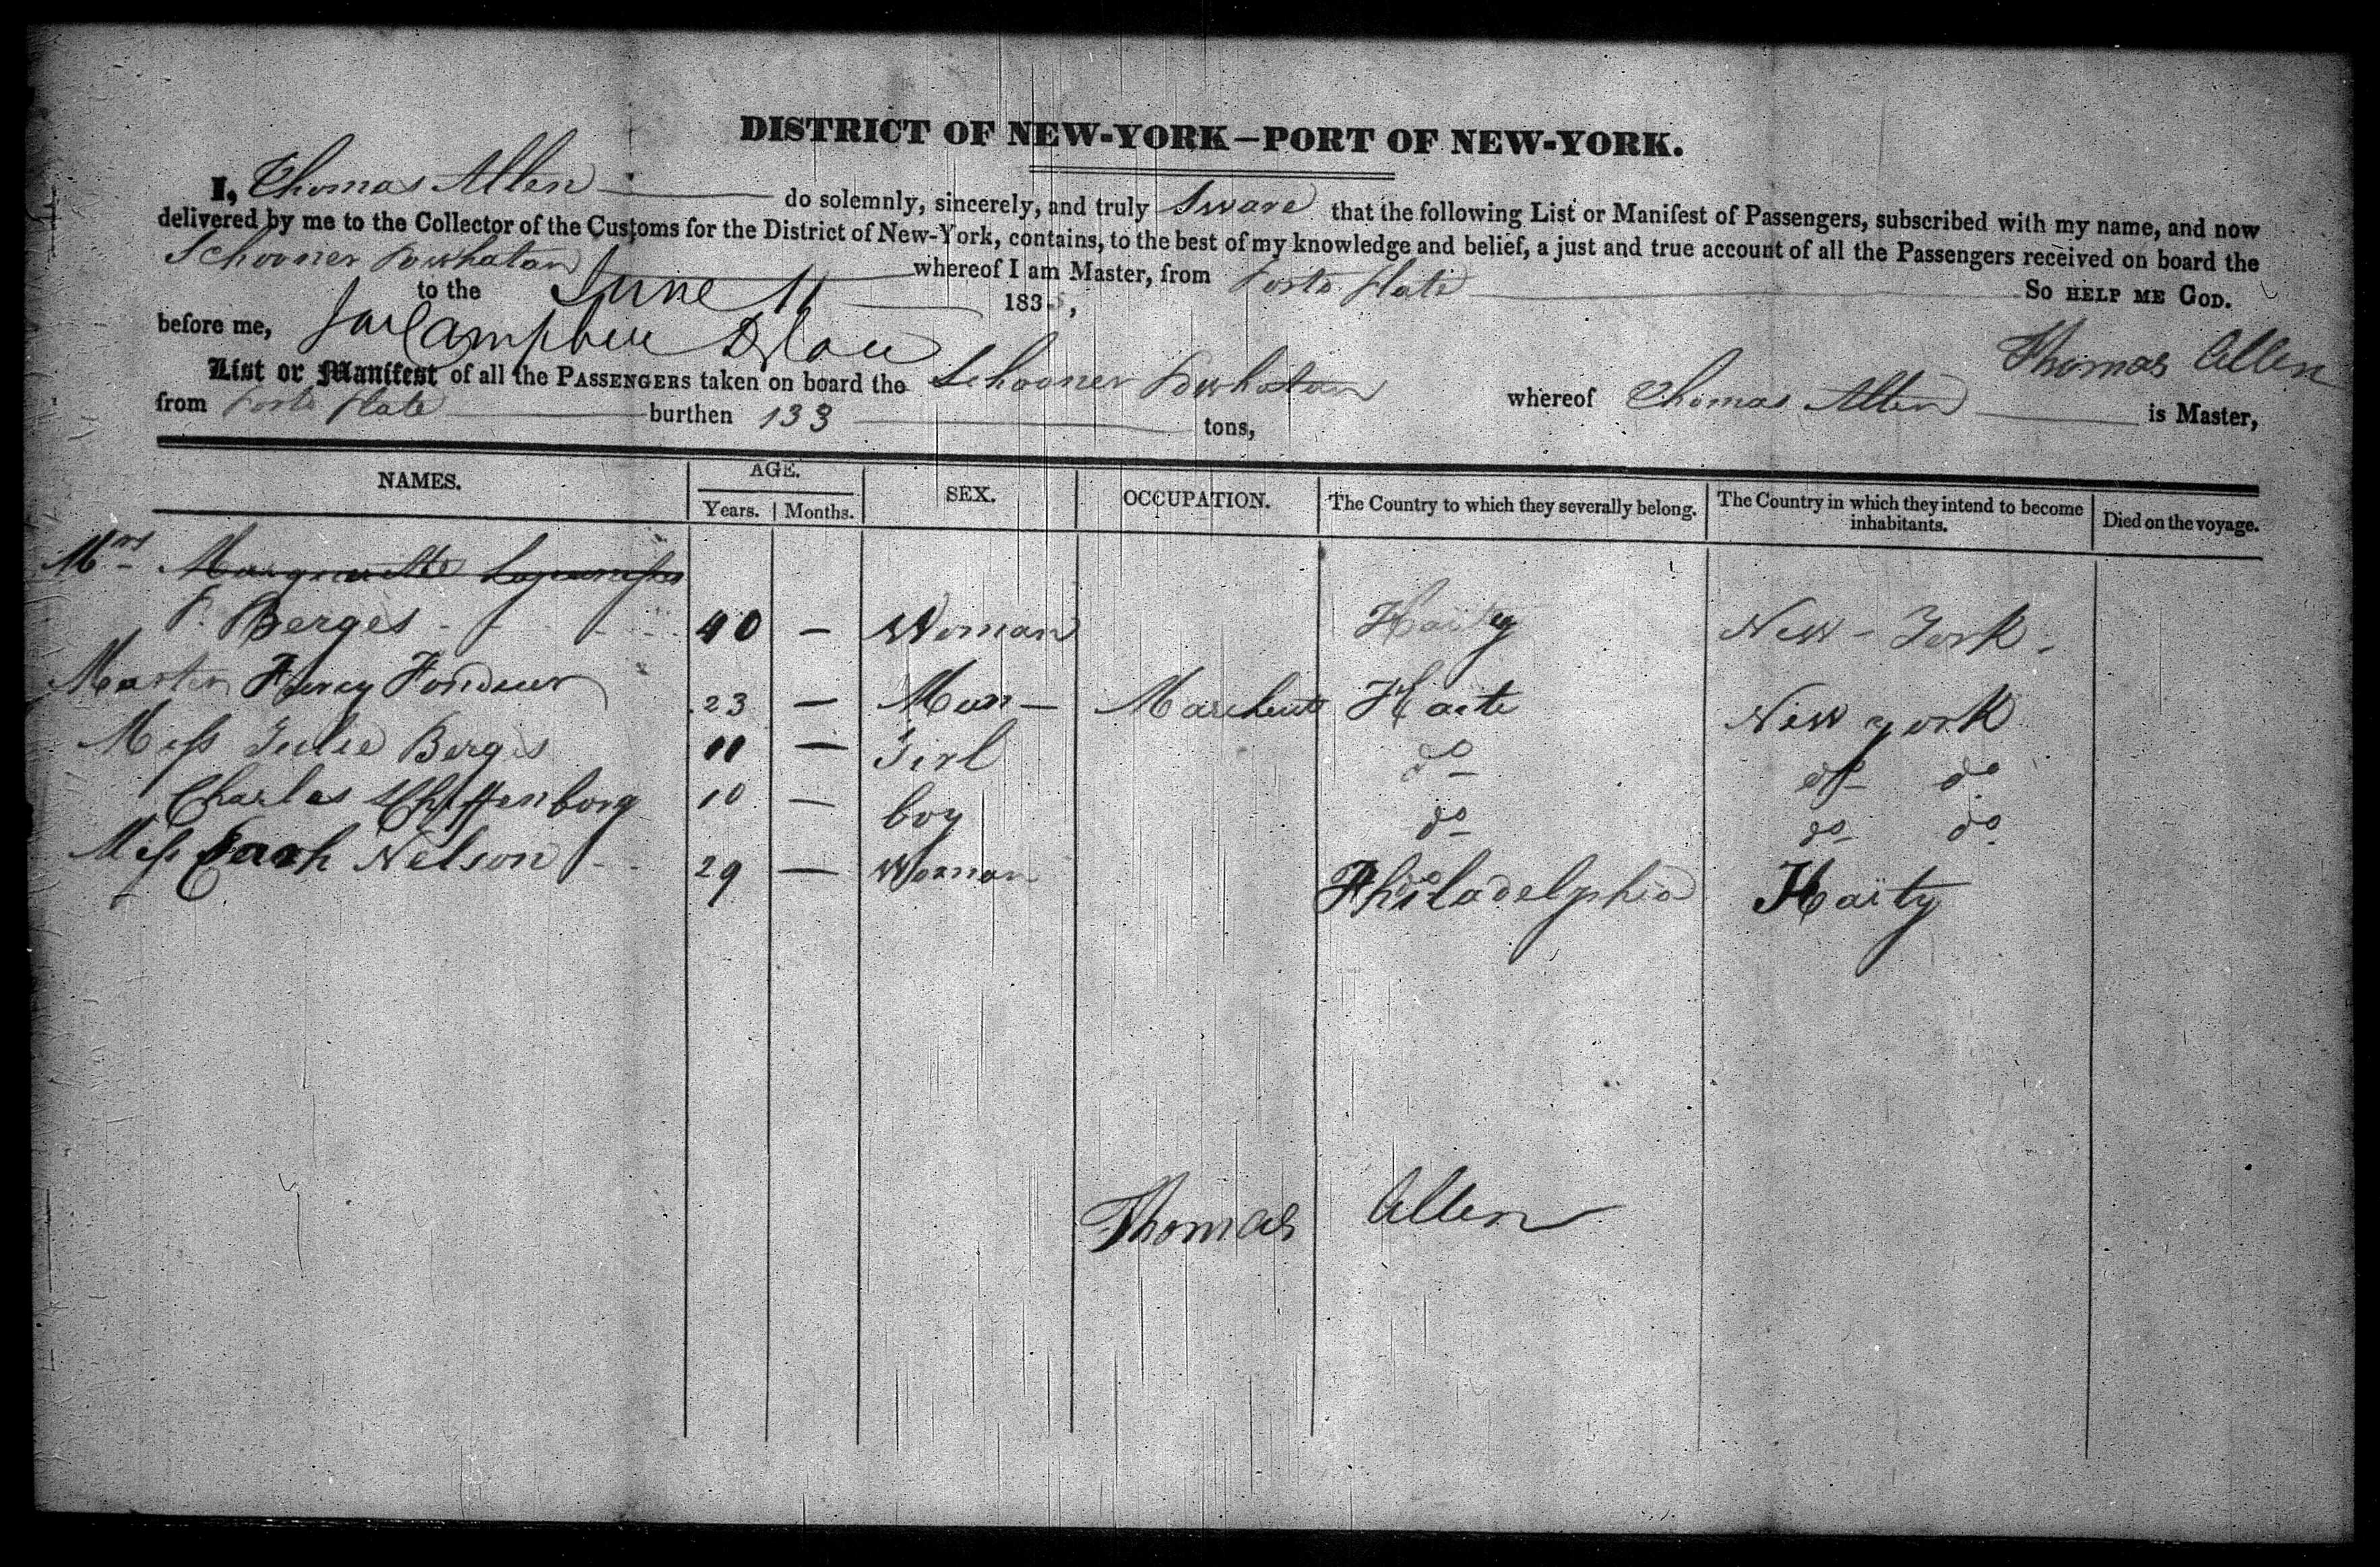 DISTRICT OF NEW-YORK—PORT OF NEW-YORK.
I, Thomas Allen do solemnly, sincerely, and truly Sware that the following List or Manifest of Passengers, subscribed with my name, and now
delivered by me to the Collector of the Customs for the District of New-York, contains, to the best of my knowledge and belief, a just and true account of all the Passengers received on board the
Schooner Powhatan whereof I am Master, from Porto Plate So HELP ME GOD.
to the June 11 183 ,
before me, Thomas Allen
List or Manifest of all the PASSENGERS taken on board the Schooner Powhatan whereof Thomas Allen is Master,
from Porto Plate burthen 133 tons,
NAMES. AGE. Years. Months. SEX. OCCUPATION. The Country to which they severally belong. The Country in which they intend to become inhabitants. Died on the voyage.
Mrs
F. Berges 40 — Woman Haity New-York.
Furcy Fondeur 23 — Man — Marchant Haite New york
Miss Julie Berges 11 — Girl do do do
Charles 10 — boy do do do
Miss Sarah Nelson 29 — Woman Philadelphia Haïty
Thomas Allen